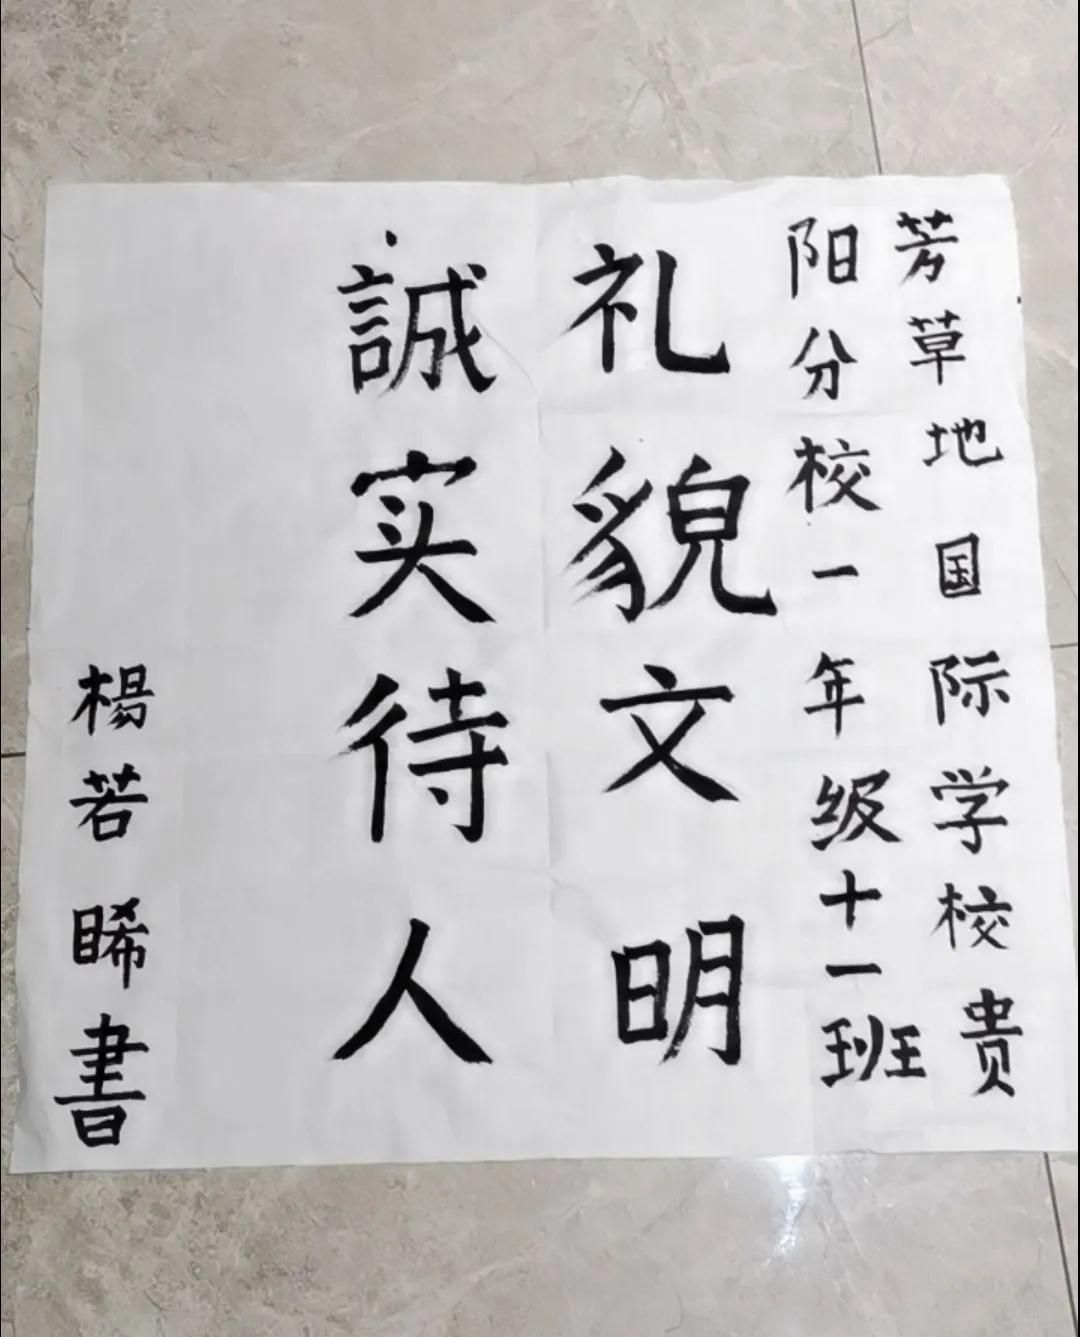 芳草地国际学校贵
阳分校一年级十一班
礼貌文明
誠实待人
楊若睎書